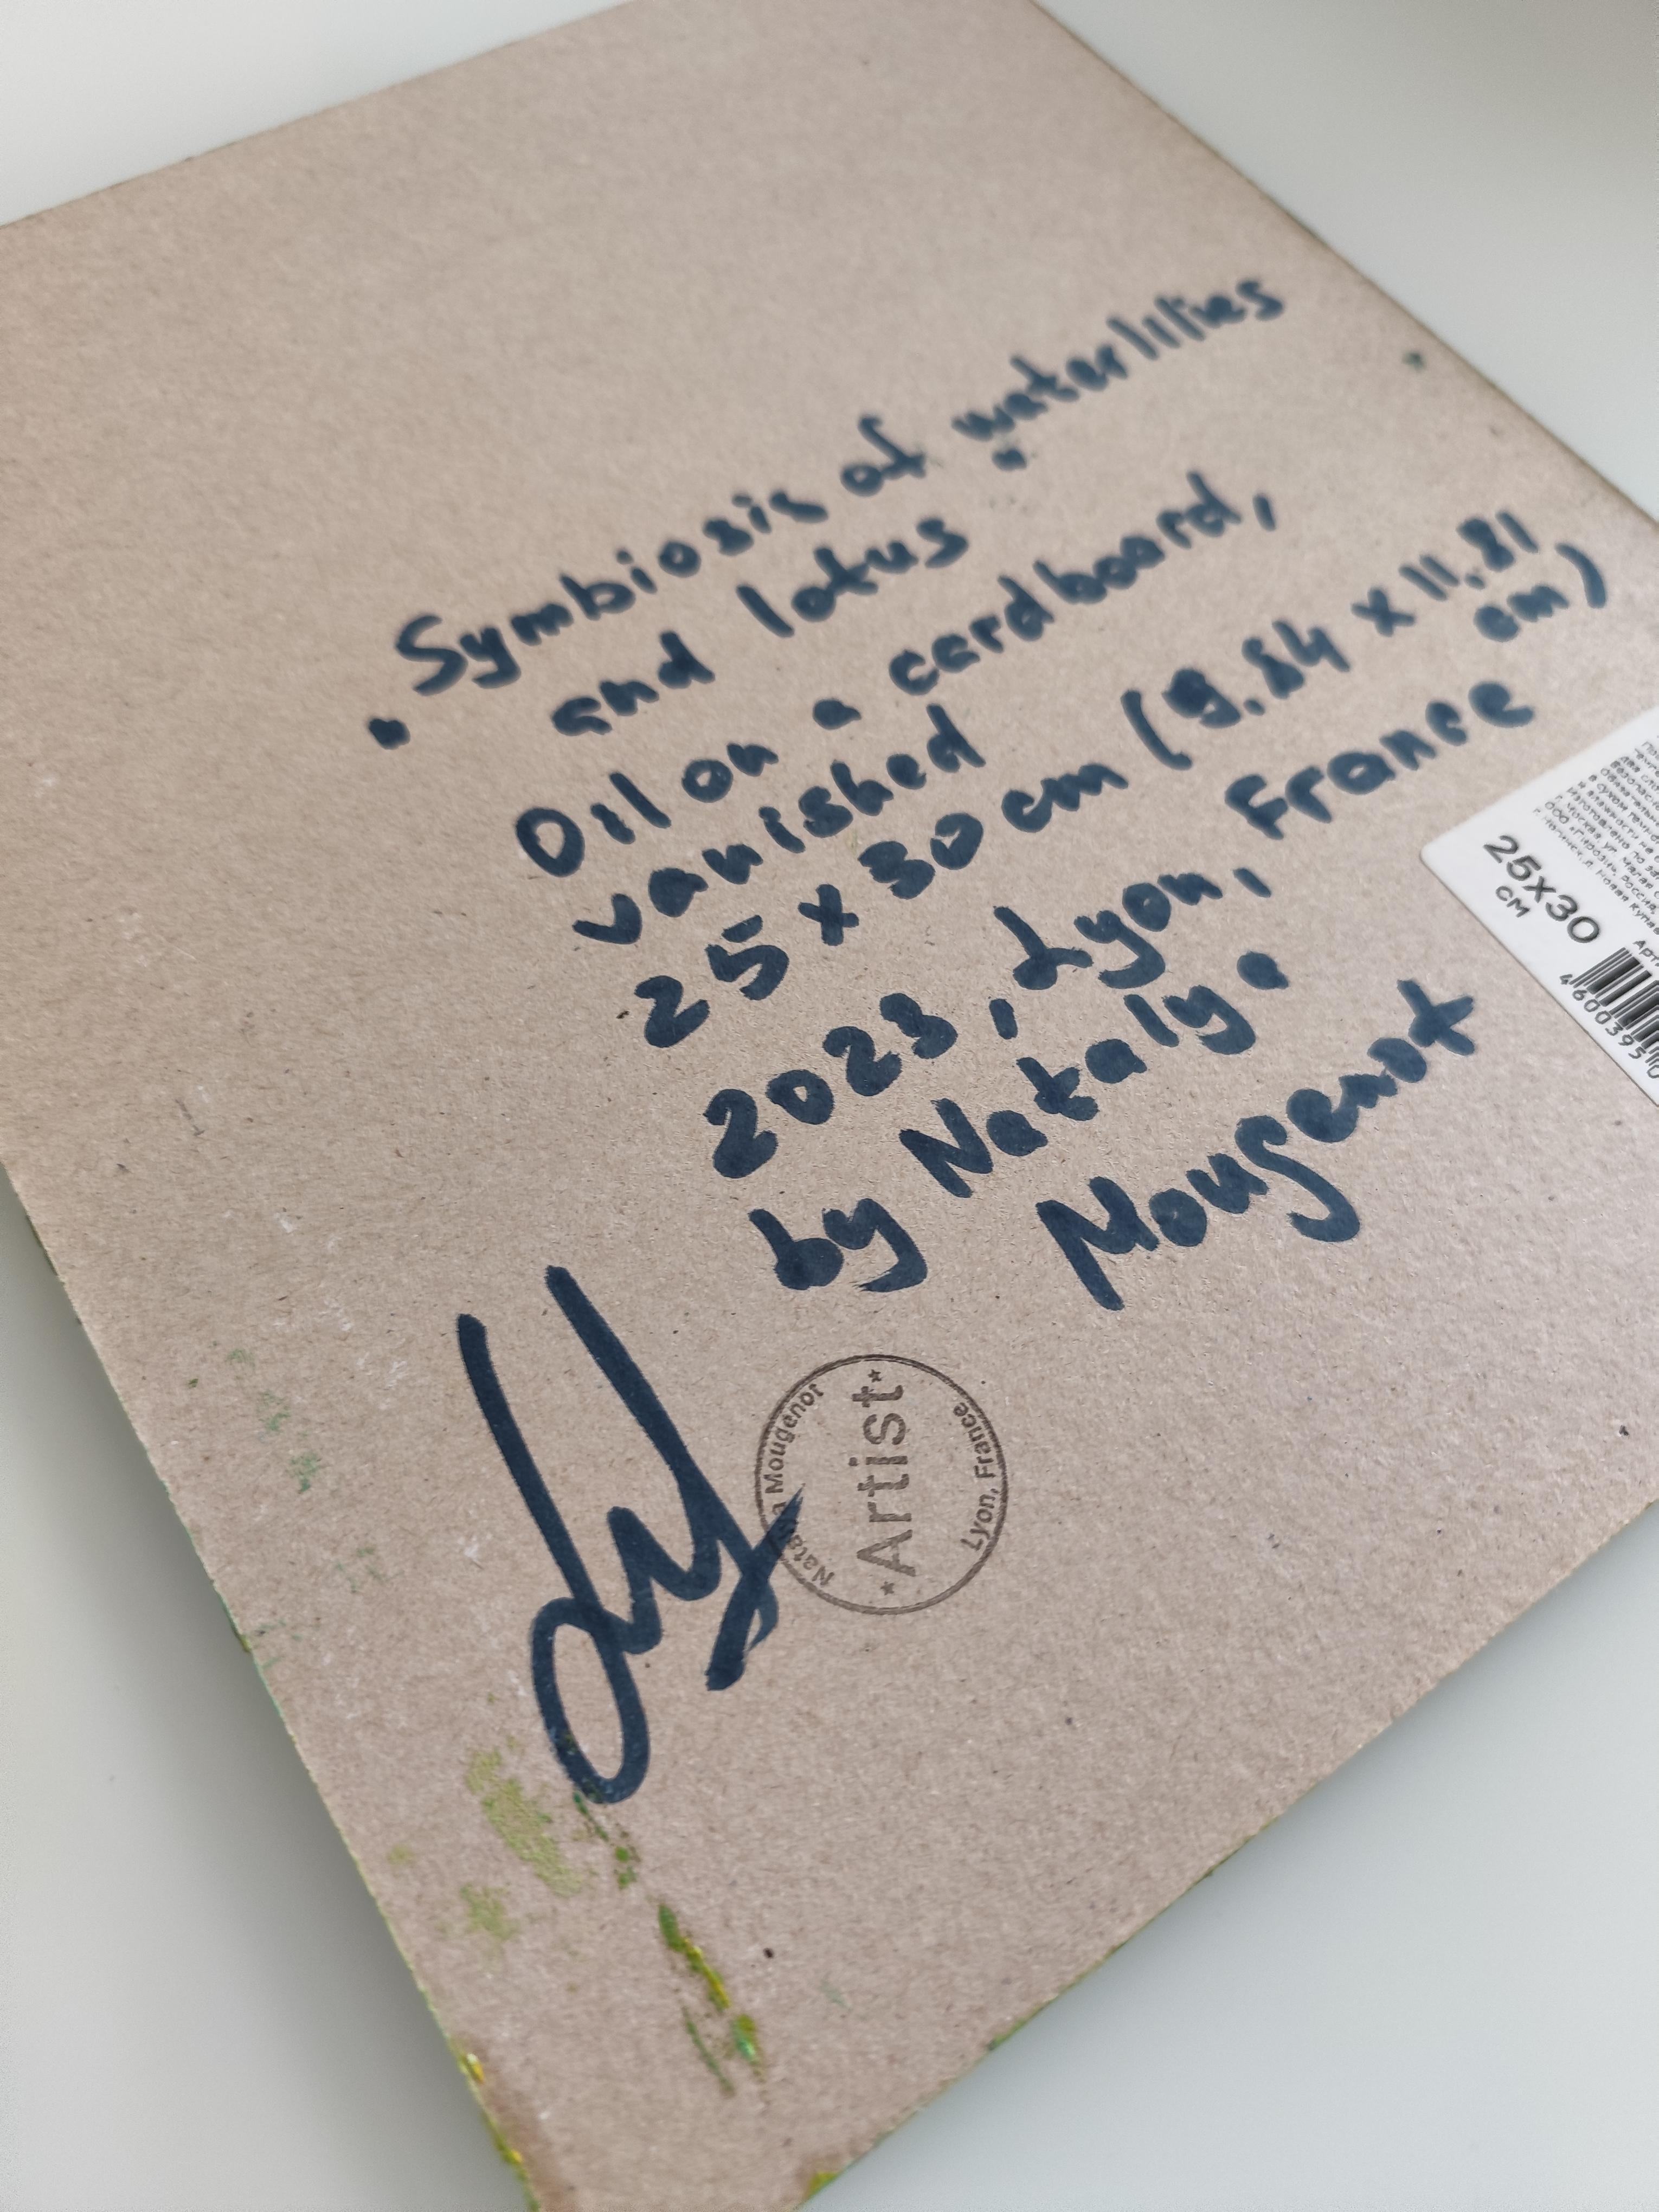 "Symbiosis of waterlilies
and lotus"
Oil on a cardboard,
vanished
25 x 30 cm (9.84 x 11.81
cm)
2023, Lyon, France
by Nataly.
Mougenot
Mougenot
Artist
Lyon, France
25x30
см
4 600395 0